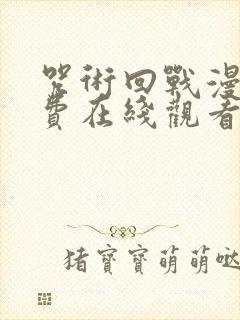 咒術回戰漫
費在綫觀看
猪寶寶萌萌哒